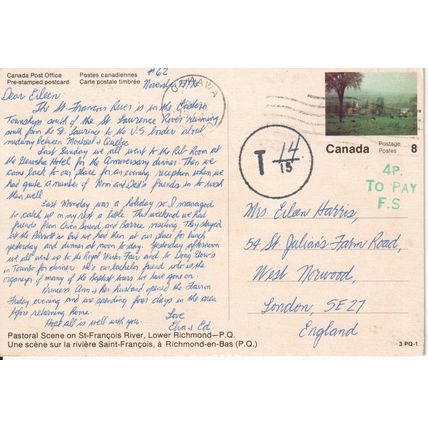 Canada Post Office
Pre-stamped postcard
Postes canadiennes
Carte postale timbrée
#62
November
OTTAWA
Dear Eileen:
The St. Francois River is in the Eastern
Townships south of the St Lawrence River running
south from the St. Lawrence to the U.S border about
midway between Montreal & Quebec
Last Sunday we all went to the Room at
the Hotel for the Anniversary dinner. Then we
came back to our place for an evening reception when we
had quite a number of Mom and Dad's friends in to wish
them well.
Last Monday was a holiday so I managed
to catch up on my rest a table. This weekend we had
friends from Owen Sound, and Barrie visiting. They stayed
at the but we had them at our place for lunch
yesterday and dinner at noon to day. Yesterday afternoon
we all went up to the Royal Winter Fair and to
in Toronto for dinner. He's our bachelor friend who is the
of many of the tapes we have given
Princess Anne & her husband opened the Fair on
Friday evening and are spending four days in the area
before returning home.
Hope all is well with you.
Love
& Ed.
Pastoral Scene on St-François River, Lower Richmond—P.Q.
Une scène sur la rivière Saint-François, à Richmond-en-Bas (P.Q.)
Canada
Postage
Postes
8
T 14
15
4P.
TO PAY
F.S
Mrs. Eileen Harris,
54 St. Julian's Farm Road,
West Norwood,
London, SE27
England
3 PQ-1